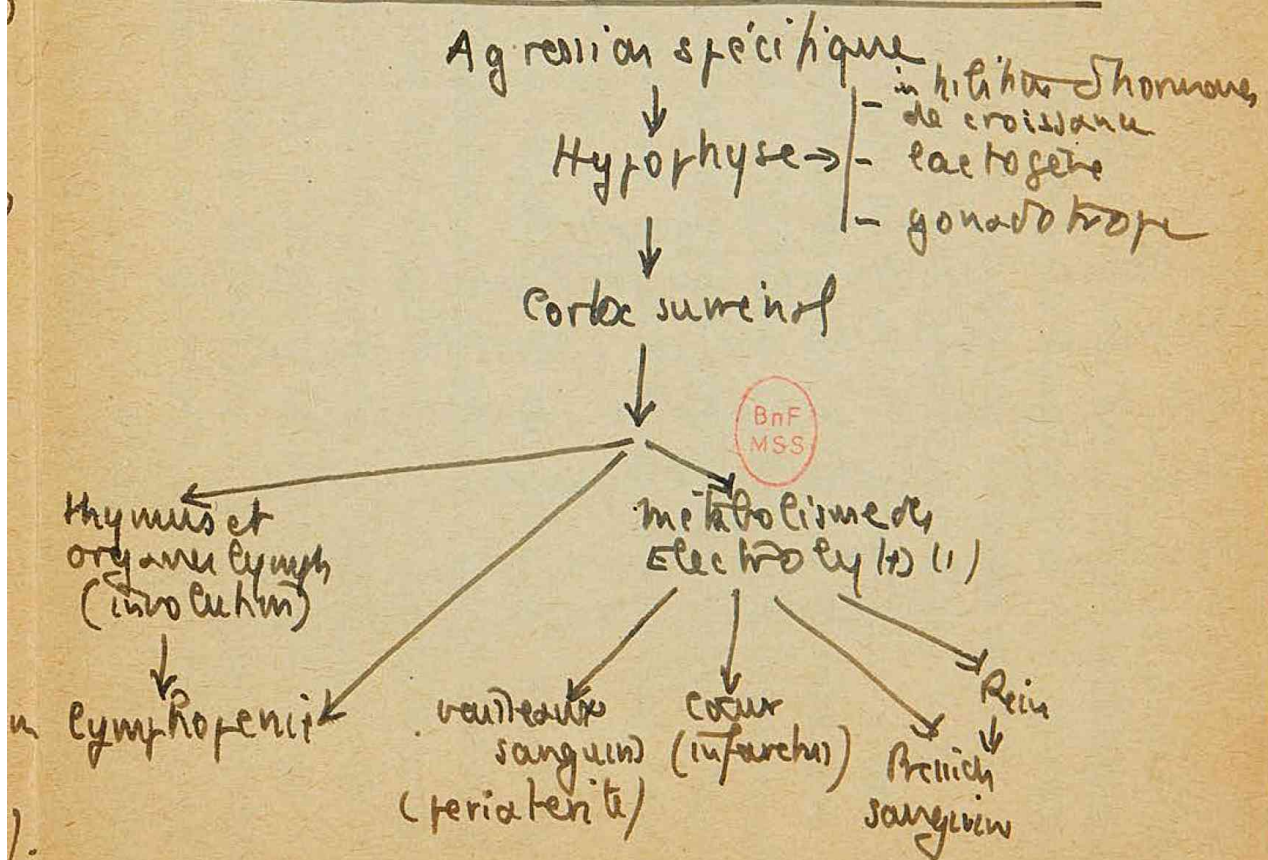 Agression spécifique
↓
Hypophyse → - inhibition d'hormones
de croissance
- lactogène
- gonadotrope
↓
Cortex surrénal
↓
BnF
MSS
Thymus et
organes lymph
(involution)
↓
lymphopénie
métabolisme des
Electroly (+) (1)
vaisseaux
sanguins
(periarterite)
coeur
(infarctus)
Rein
↓
Pression
sanguine